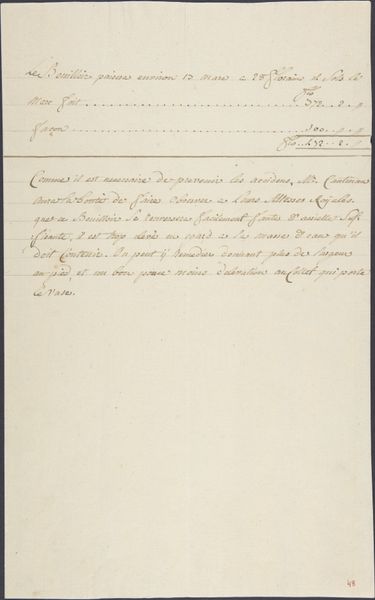 Le Bouilloir pesera environ 13 marc a 28 florins 4 Sols le
fls
Marc fait . . . . . . . . . . . . . . . . . . 372 .. 2 .. "
façon . . . . . . . . . . . . . . . . . . 100 .. " .. "
Fls 472 .. 2 .. "
Comme il est necessaire de prevenir les accidens, Mr.
aura la bonté de faire observer a Leurs Altesses Royales,
que ce Bouilloir se renversera facilement faute d'assiette suf-
fisante, il est trop élevé eu egard a la masse d'eau qu'il
doit contenir. On peut y remedier donnant plus de largeur
au pied, et un bon pouce moins d'elevation au Collet qui porte
le vase.
48